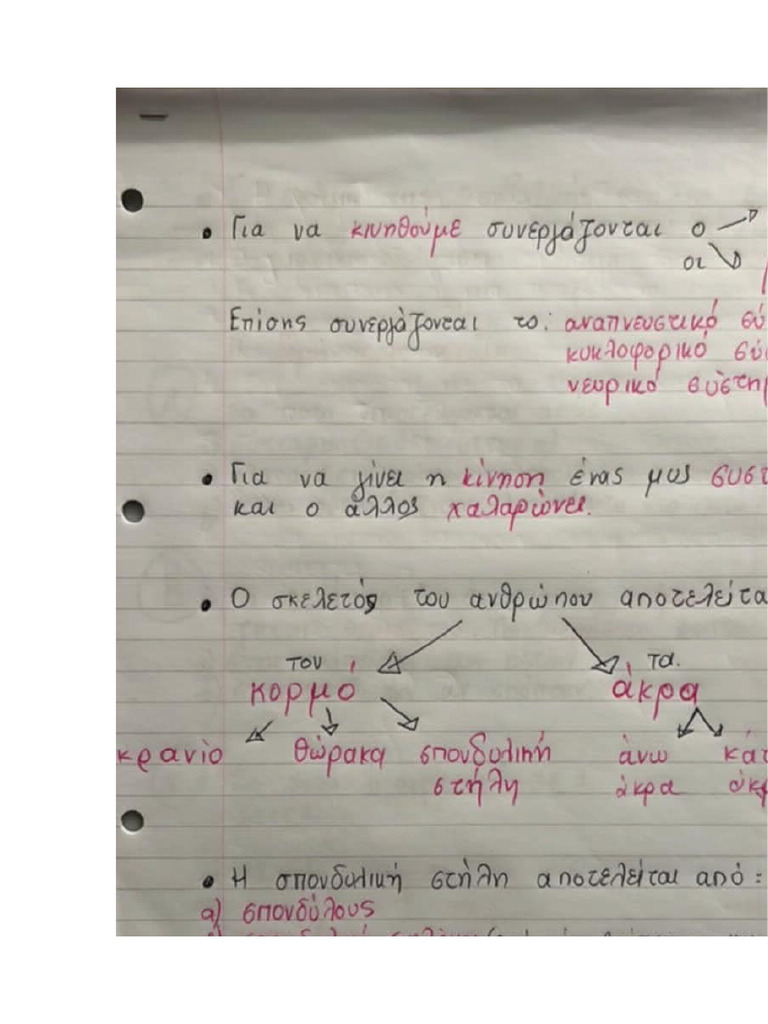 • Για να κινηθούμε συνεργάζονται ο
οι
Επίσης συνεργάζονται το: αναπνευστικό σύ
κυκλοφορικό σύ
νευρικό σύστη
• Για να γίνει η κίνηση ένας μυς συστ
και ο άλλος χαλαρώνει.
• Ο σκελετός του ανθρώπου αποτελείτα
τον τα.
κορμό άκρα
κρανίο θώρακα σπονδυλική άνω κάτ
στήλη άκρα άκρ
• Η σπονδυλική στήλη αποτελείται από:
α) σπονδύλους